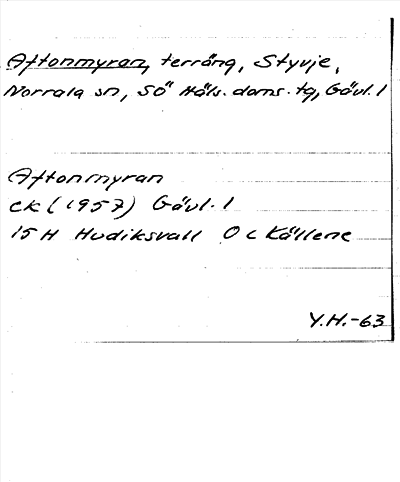 Aftonmyran, terräng, Styvje,
Norrala sn, Sö Häls. doms. tg, Gävl. l
Aftonmyran
ek (1957) Gävl. l
15 H Hudiksvall O c Källene
Y.H.-63